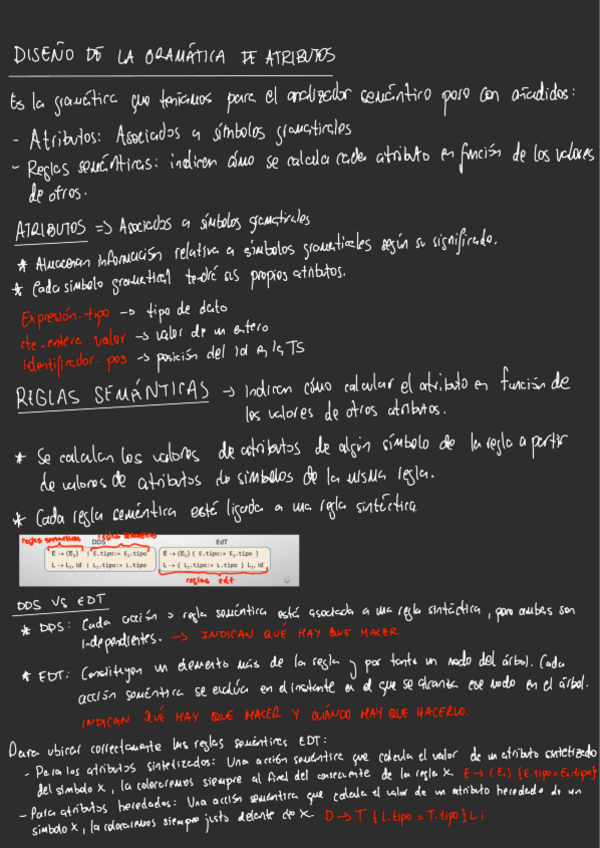 DISEÑO DE LA GRAMÁTICA DE ATRIBUTOS
Es la gramática que teníamos para el analizador semántico pero con añadidos:
- Atributos: Asociados a símbolos gramaticales
- Reglas semánticas: indican cómo se calcula cada atributo en función de los valores
de otros.
ATRIBUTOS => Asociados a símbolos gramaticales
* Almacenan información relativa a símbolos gramaticales según su significado.
* Cada símbolo gramatical tendrá sus propios atributos.
Expresión.tipo -> tipo de dato
cte-entera.valor -> valor de un entero
Identificador.pos -> posición del id en la TS
REGLAS SEMÁNTICAS -> Indican cómo calcular el atributo en función de
los valores de otros atributos.
* Se calculan los valores de atributos de algún símbolo de la regla a partir
de valores de atributos de símbolos de la misma regla.
* Cada regla semántica está ligada a una regla sintáctica
DDS EdT
E → (E₁) | E.tipo:= E₁.tipo E → (E₁) { E.tipo:= E₁.tipo }
L → L₁, id | L₁.tipo:= L.tipo L → { L₁.tipo:= L.tipo } L₁, id
reglas edt
DDS VS EDT
* DDS: Cada acción o regla semántica está asociada a una regla sintáctica, pero ambas son
independientes. -> INDICAN QUÉ HAY QUE HACER
* EDT: Constituyen un elemento más de la regla y por tanto un nodo del árbol. Cada
acción semántica se evalúa en el instante en el que se alcanza ese nodo en el árbol.
INDICAN QUÉ HAY QUE HACER Y CUÁNDO HAY QUE HACERLO.
Para ubicar correctamente las reglas semánticas EDT:
- Para los atributos sintetizados: Una acción semántica que calcula el valor de un atributo sintetizado
del símbolo X, la colocaremos siempre al final del consecuente de la regla X E → (E₁) {E.tipo=E₁.tipo}
- Para atributos heredados: Una acción semántica que calcula el valor de un atributo heredado de un
símbolo X, la colocaremos siempre justo delante de X. D → T {L.tipo = T.tipo} L;